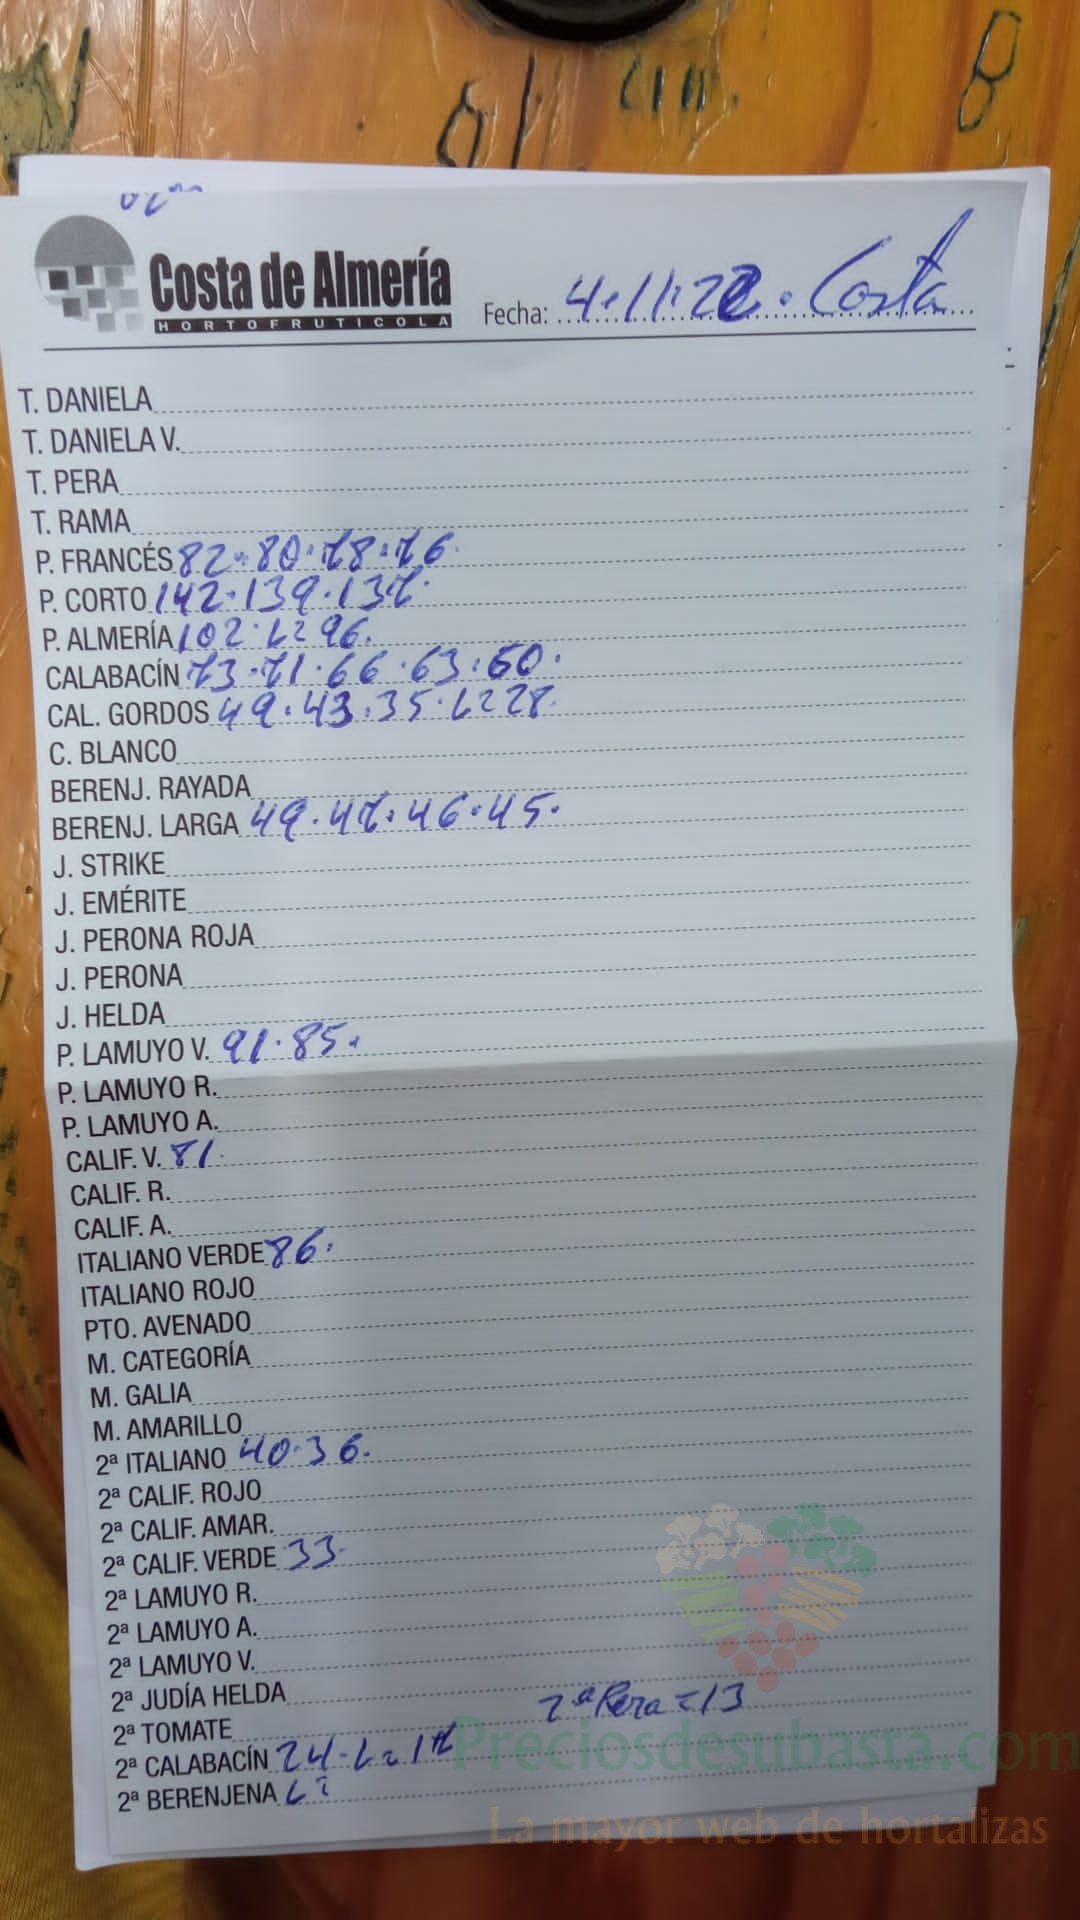 Costa de Almería
HORTOFRUTICOLA
Fecha: 4.11.22. Costa
T. DANIELA
T. DANIELA V.
T. PERA
T. RAMA
P. FRANCÉS 82.80.78.76.
P. CORTO 142.139.137.
P. ALMERÍA 102. L2 96.
CALABACÍN 73.71.66.63.60.
CAL. GORDOS 49.43.35. L2 28.
C. BLANCO
BERENJ. RAYADA
BERENJ. LARGA 49.47.46.45.
J. STRIKE
J. EMÉRITE
J. PERONA ROJA
J. PERONA
J. HELDA
P. LAMUYO V. 91.85.
P. LAMUYO R.
P. LAMUYO A.
CALIF. V. 81.
CALIF. R.
CALIF. A.
ITALIANO VERDE 86.
ITALIANO ROJO
PTO. AVENADO
M. CATEGORÍA
M. GALIA
M. AMARILLO
2ª ITALIANO 40.36.
2ª CALIF. ROJO
2ª CALIF. AMAR.
2ª CALIF. VERDE 33.
2ª LAMUYO R.
2ª LAMUYO A.
2ª LAMUYO V.
2ª JUDÍA HELDA
2ª TOMATE 2ª Pera = 13
2ª CALABACÍN 24. L2 17
2ª BERENJENA L2
Preciosdesubasta.com
La mayor web de hortalizas